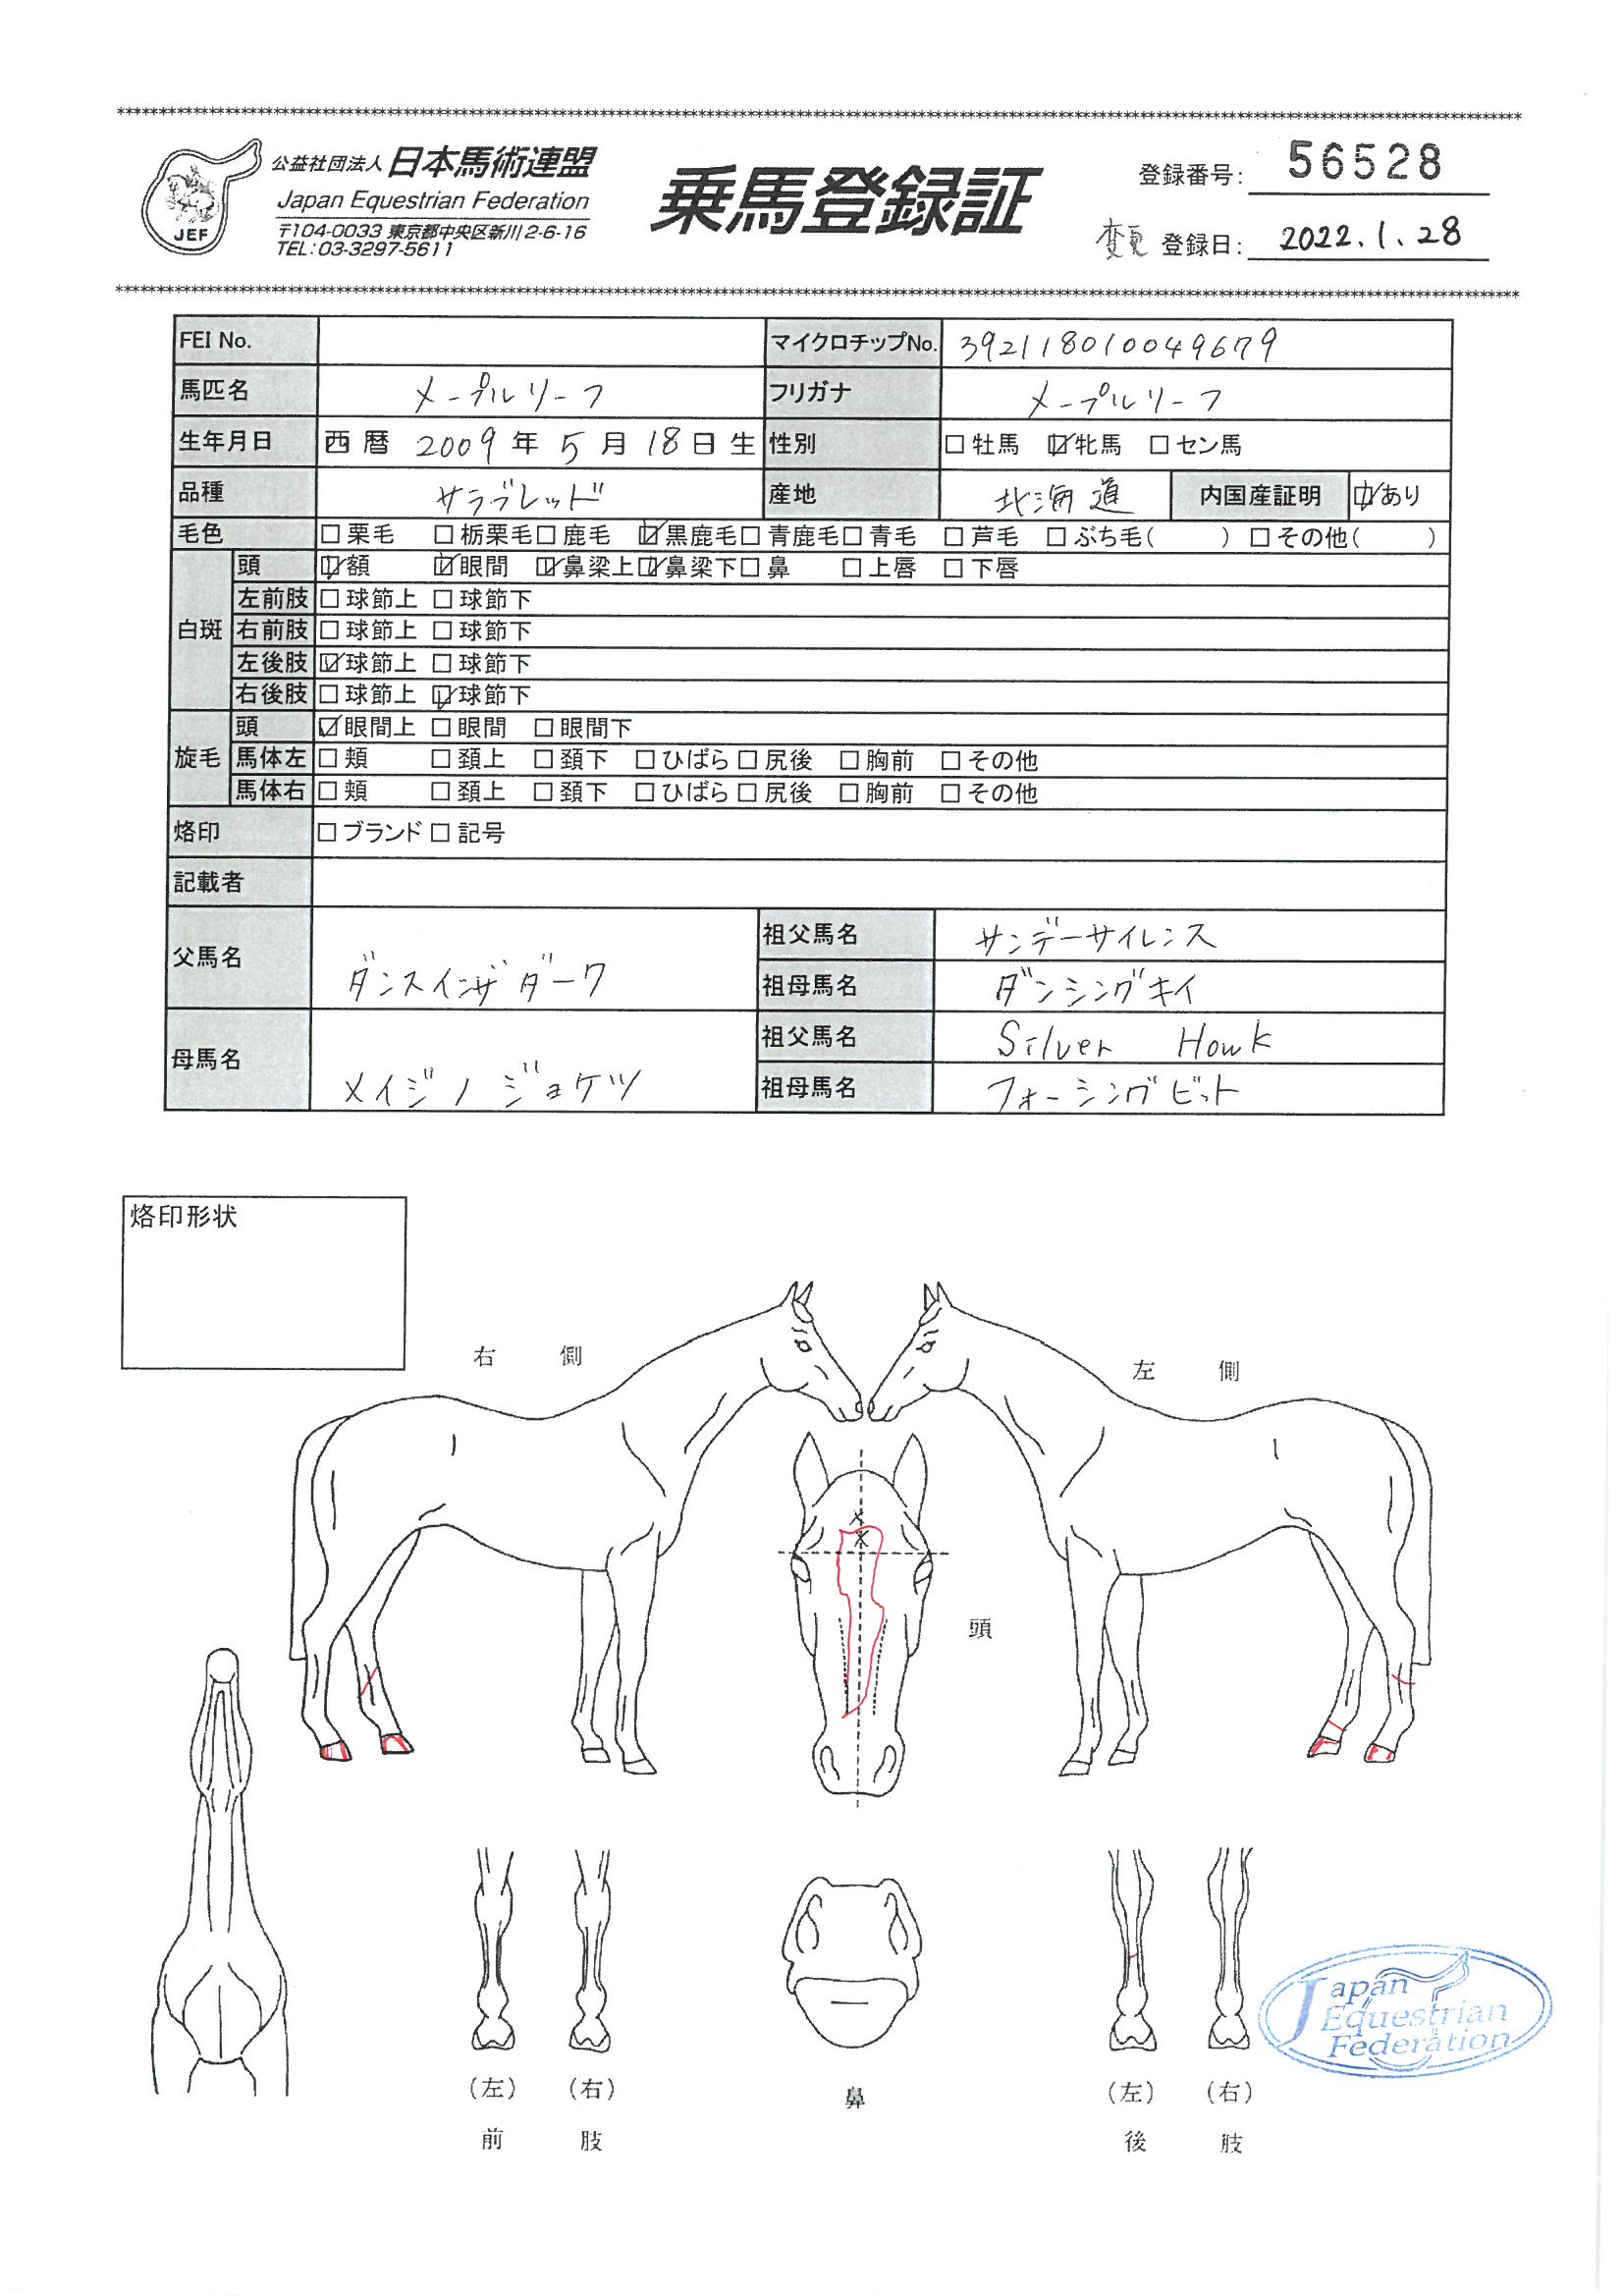 ****************************************************************
公益社団法人 日本馬術連盟
Japan Equestrian Federation
〒104-0033 東京都中央区新川2-6-16
TEL:03-3297-5611
JEF
乗馬登録証
登録番号: 56528
変更 登録日: 2022.1.28
****************************************************************
FEI No. マイクロチップNo. 392118010049679
馬匹名 メープルリーフ フリガナ メープルリーフ
生年月日 西暦 2009年 5月 18日生 性別 □牡馬 ☑牝馬 □セン馬
品種 サラブレッド 産地 北海道 内国産証明 ☑あり
毛色 □栗毛 □栃栗毛 □鹿毛 ☑黒鹿毛 □青鹿毛 □青毛 □芦毛 □ぶち毛( ) □その他( )
白斑 頭 ☑額 ☑眼間 ☑鼻梁上 ☑鼻梁下 □鼻 □上唇 □下唇
左前肢 □球節上 □球節下
右前肢 □球節上 □球節下
左後肢 ☑球節上 □球節下
右後肢 □球節上 ☑球節下
旋毛 頭 ☑眼間上 □眼間 □眼間下
馬体左 □頬 □頚上 □頚下 □ひばら □尻後 □胸前 □その他
馬体右 □頬 □頚上 □頚下 □ひばら □尻後 □胸前 □その他
烙印 □ブランド □記号
記載者
父馬名 ダンスインザダーク 祖父馬名 サンデーサイレンス
祖母馬名 ダンシングキイ
母馬名 メイジノジョケツ 祖父馬名 Silver Howk
祖母馬名 フォーシングビット
烙印形状
右側
左側
頭
(左) (右)
前肢
鼻
(左) (右)
後肢
Japan
Equestrian
Federation